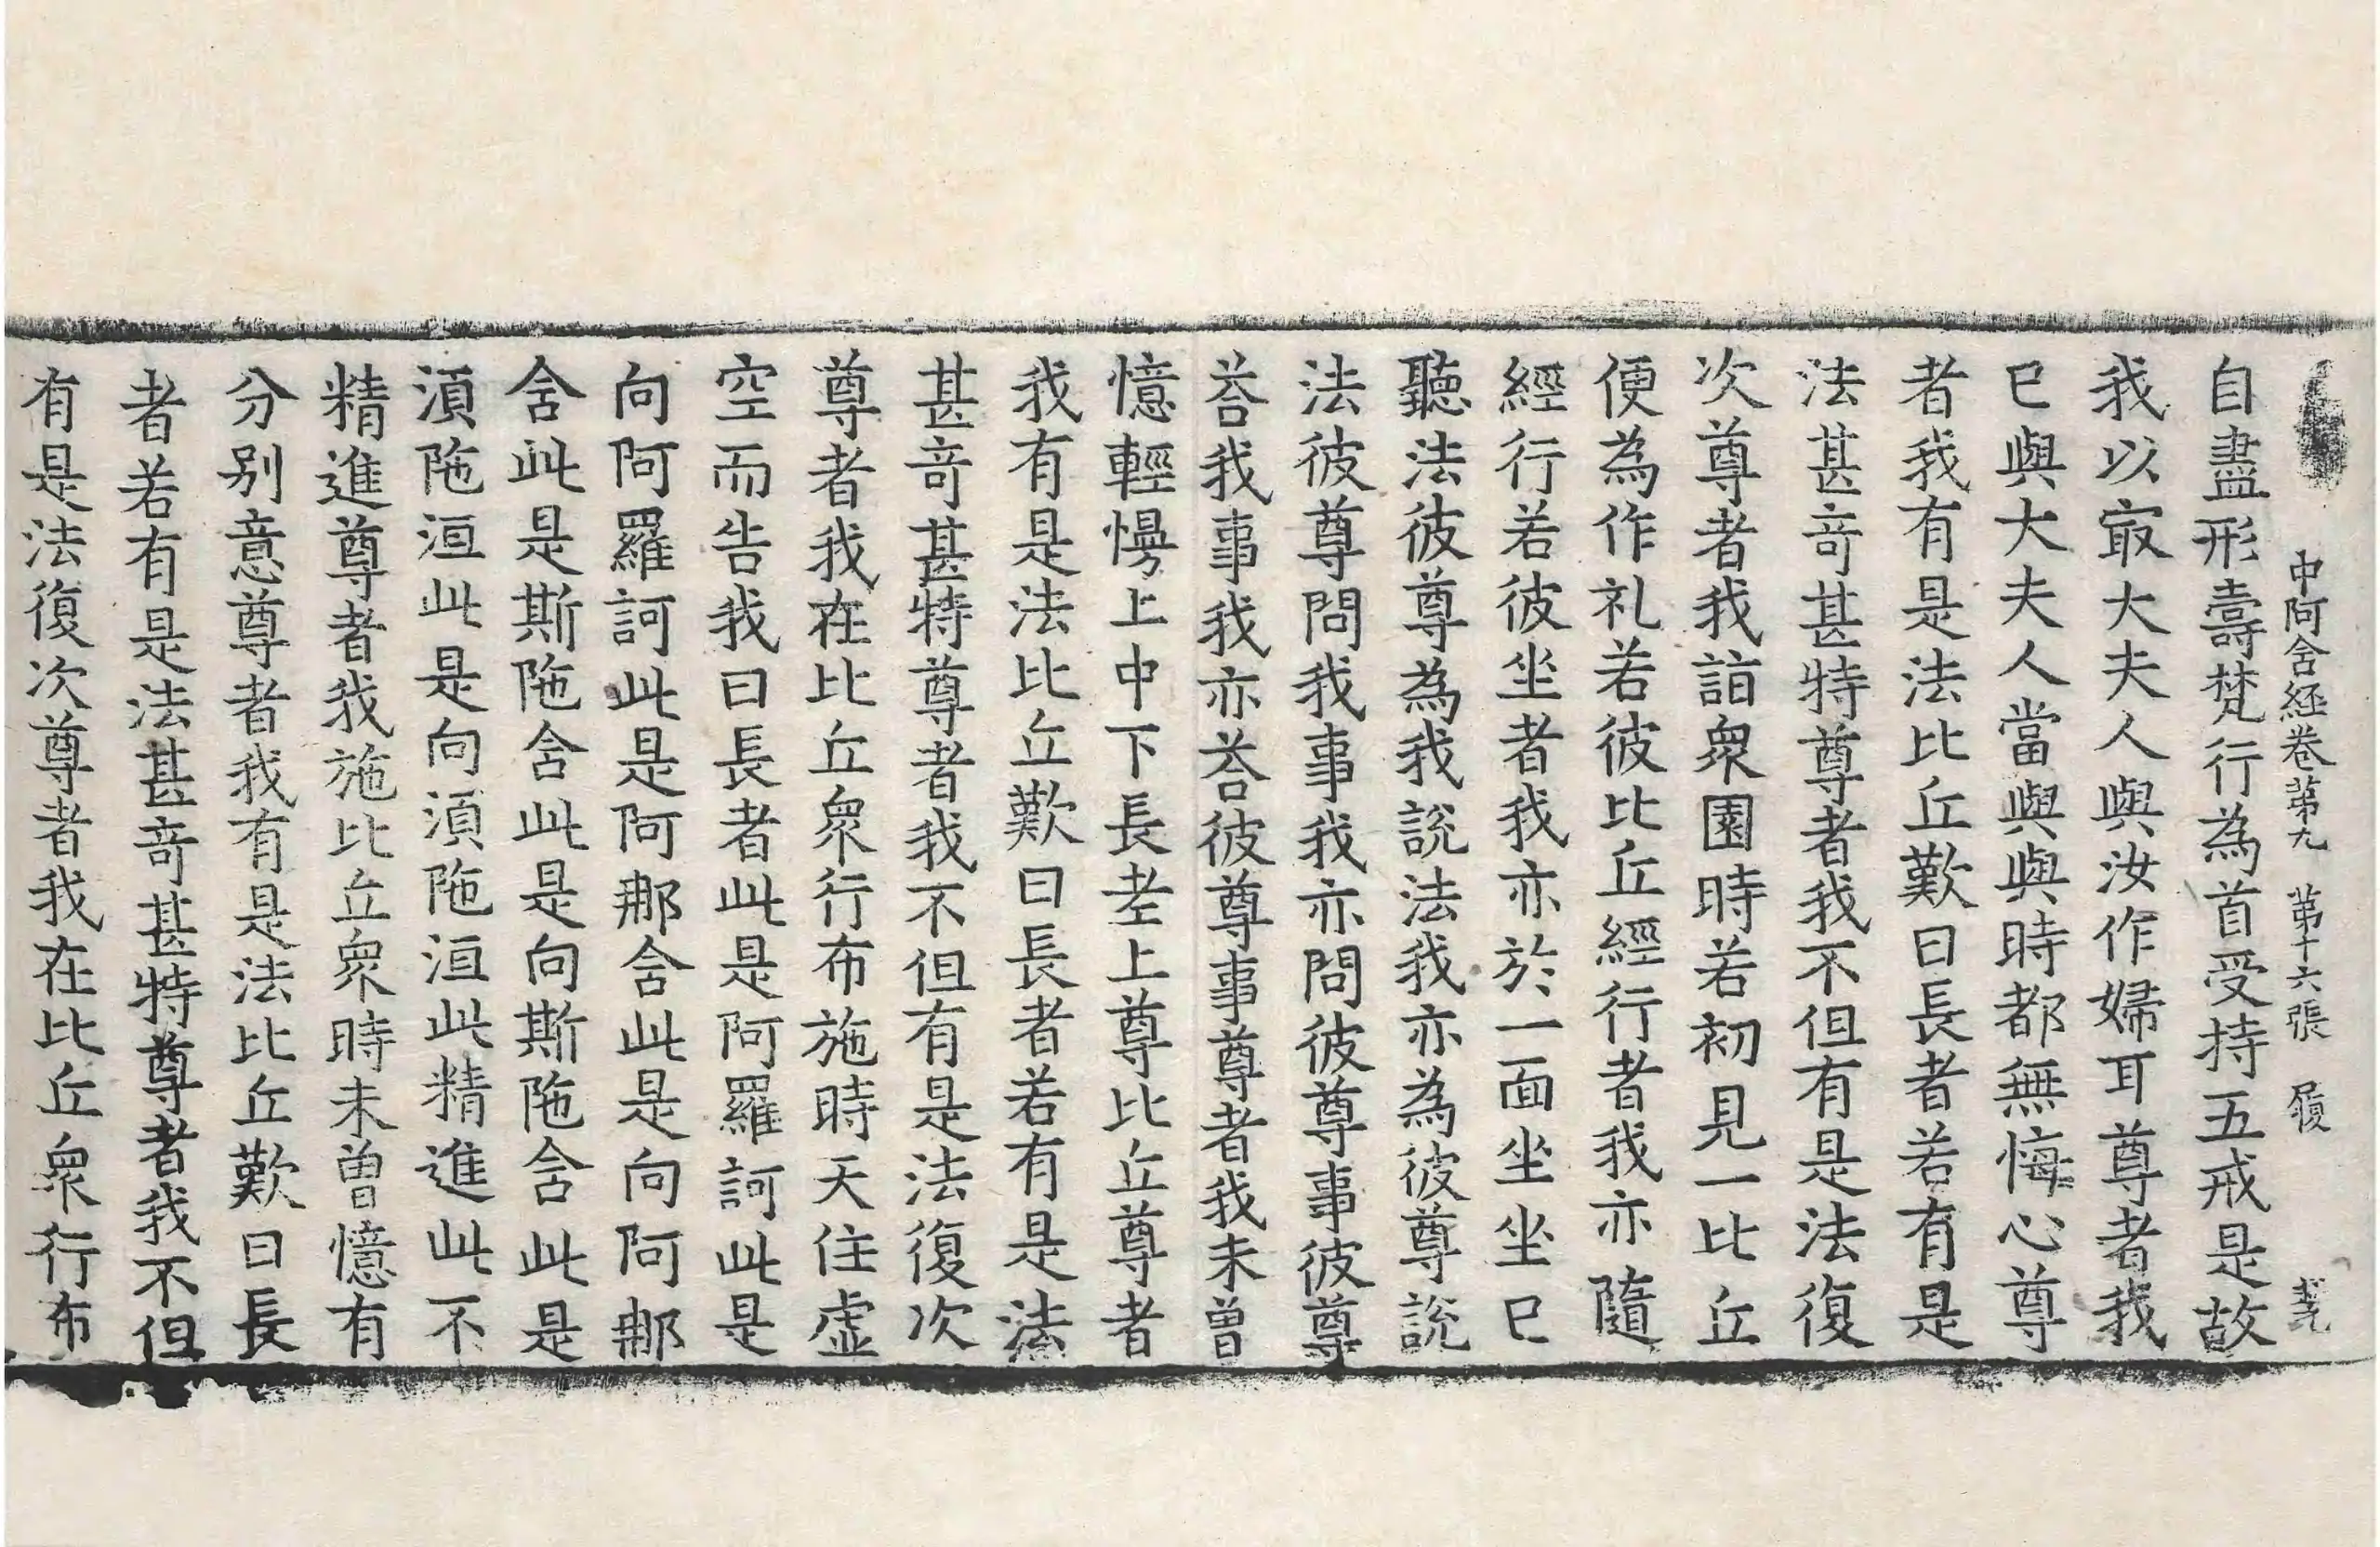 中阿含経卷第九　第十六張　履
自盡形壽梵行為首受持五戒是故
我以㝡大夫人與汝作婦耳尊者我
已與大夫人當與與時都無悔心尊
者我有是法比丘歎曰長者若有是
法甚竒甚特尊者我不但有是法復
次尊者我詣衆園時若初見一比丘
便為作礼若彼比丘經行者我亦隨
經行若彼坐者我亦於一面坐坐已
聽法彼尊為我說法我亦為彼尊說
法彼尊問我事我亦問彼尊事彼尊
荅我事我亦荅彼尊事尊者我未曾
憶輕慢上中下長老上尊比丘尊者
我有是法比丘歎曰長者若有是法
甚竒甚特尊者我不但有是法復次
尊者我在比丘衆行布施時天住虚
空而告我曰長者此是阿羅訶此是
向阿羅訶此是阿那含此是向阿那
含此是斯陁含此是向斯陁含此是
湏陁洹此是向湏陁洹此精進此不
精進尊者我施比丘衆時未曾憶有
分别意尊者我有是法比丘歎曰長
者若有是法甚竒甚特尊者我不但
有是法復次尊者我在比丘衆行布